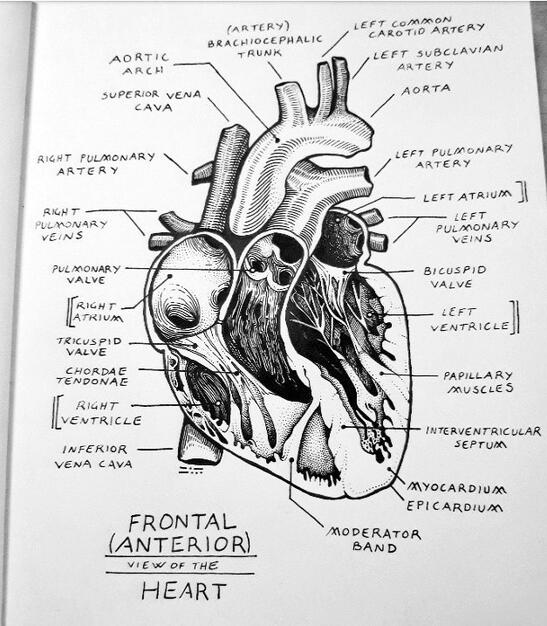 (ARTERY)
BRACHIOCEPHALIC
TRUNK
LEFT COMMON
CAROTID ARTERY
LEFT SUBCLAVIAN
ARTERY
AORTIC
ARCH
AORTA
SUPERIOR VENA
CAVA
RIGHT PULMONARY
ARTERY
LEFT PULMONARY
ARTERY
LEFT ATRIUM
RIGHT
PULMONARY
VEINS
LEFT
PULMONARY
VEINS
PULMONARY
VALVE
BICUSPID
VALVE
RIGHT
ATRIUM
LEFT
VENTRICLE
TRICUSPID
VALVE
CHORDAE
TENDONAE
PAPILLARY
MUSCLES
RIGHT
VENTRICLE
INTERVENTRICULAR
SEPTUM
INFERIOR
VENA CAVA
MYOCARDIUM
EPICARDIUM
MODERATOR
BAND
FRONTAL
(ANTERIOR)
VIEW OF THE
HEART